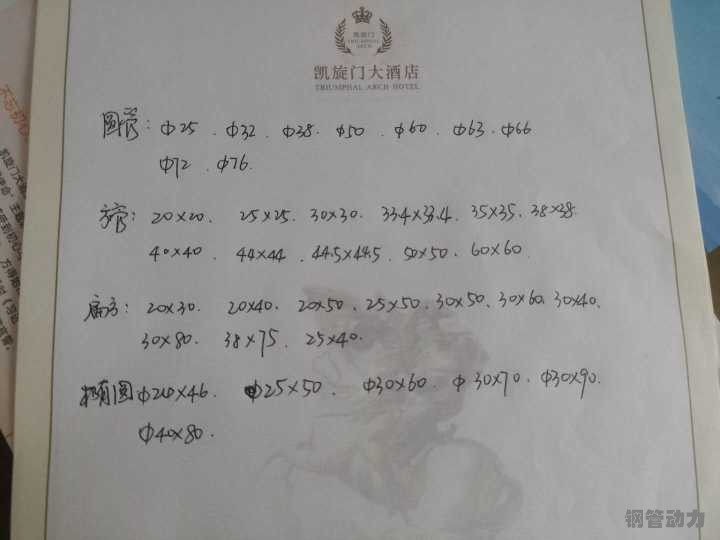 凯旋门
TRIUMPHAL
ARCH
凯旋门大酒店
TRIUMPHAL ARCH HOTEL
圆管: Φ25 . Φ32 . Φ38 . Φ50 . Φ60 . Φ63 . Φ66
Φ72 . Φ76.
方管: 20×20. 25×25. 30×30. 33.4×33.4. 35×35. 38×38.
40×40. 44×44. 44.5×44.5. 50×50. 60×60.
扁方: 20×30. 20×40. 20×50. 25×50. 30×50. 30×60. 30×40.
30×80. 38×75. 25×40.
椭圆 Φ24×46. Φ25×50. Φ30×60. Φ30×70. Φ30×90.
Φ40×80.
钢管动力